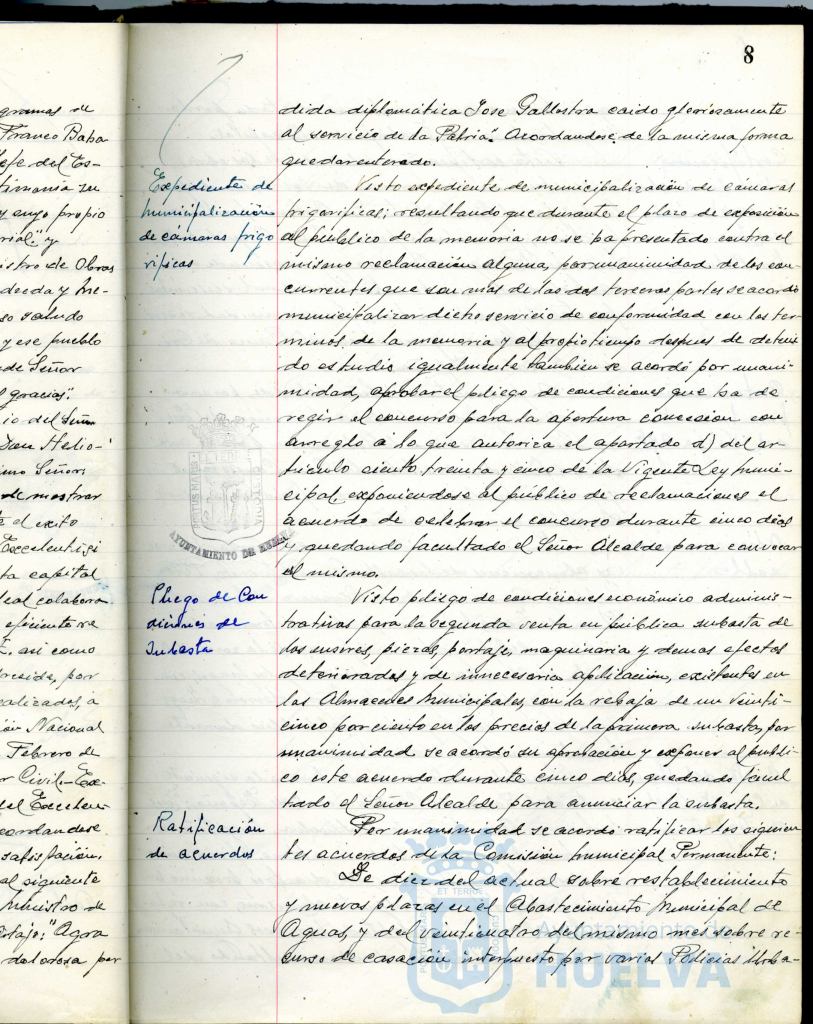 8
gramas de
Franco Baba
efe del Es-
timania su
y cuyo propio
rial." y
istro de Obras
deeda y me-
so saludo
y ese pueblo
de Señor
s gracias".
io del Señor
Don Helio-
imo Señor,
de mostrar
te el exito
Excelentisi
ta capital
leal colabora
eficiente re
E. asi como
preside, por
ealizados, a
ión Nacional
Febrero de
r Civil.-Exe-
del Excelen
cordandose
satisfación.
al siguiente
Ministro de
"Agra
dolorosa per
Expediente de
municipalización
de cámaras frigo
rificas
Pliego de Con
diciones de
Subasta
Ratificación
de acuerdos
dida diplomática Jose Gallostra caido gloriosamente
al servicio de la Patria". Acordandose de la misma forma
quedar enterado.
Visto expediente de municipalización de cámaras
frigorificas; resultando que durante el plazo de exposición
al público de la memoria no se ha presentado contra el
mismo reclamación alguna, por unanimidad de los con-
currentes que son mas de las dos terceras partes se acordó
municipalizar dicho servicio de conformidad con los ter-
minos de la memoria y al propio tiempo despues de deteni
do estudio igualmente tambien se acordó por unani-
midad, aprobar el pliego de condiciones que ha de
regir el concurso para la apertura concesion con
arreglo a lo que autoriza el apartado d) del ar-
ticulo ciento treinta y cinco de la Vigente Ley muni-
cipal exponiendose al público de reclamaciones el
acuerdo de celebrar el concurso durante cinco dias
y quedando facultado el Señor Alcalde para convocar
el mismo.
Visto pliego de condiciones económico adminis-
trativas para la segunda venta en pública subasta de
los enseres, piezas, portaje, maquinaria y demas efectos
deteriorados y de innecesaria aplicación, existentes en
los Almacenes Municipales, con la rebaja de un veinti-
cinco por ciento en los precios de la primera subasta, por
unanimidad se acordó su aprobación y exponer al públi-
co este acuerdo durante cinco dias, quedando facul
tado el Señor Alcalde para anunciar la subasta.
Por unanimidad se acordó ratificar los siguien
tes acuerdos de la Comisión Municipal Permanente:
De diez del actual sobre restablecimiento
y nuevas plazas en el Abastecimiento Municipal de
Aguas, y del veinticuatro del mismo mes sobre re-
curso de casación interpuesto por varios Policias Urba-
AYUNTAMIENTO DE HUELVA
Ayuntamiento de
HUELVA